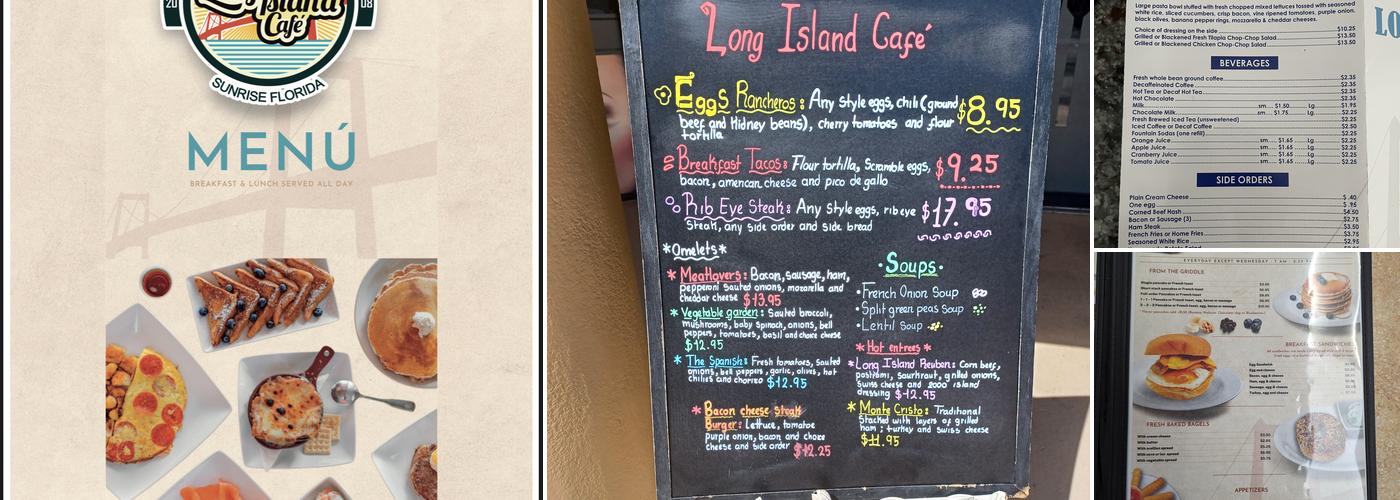 20 08
Long Island
Café
SUNRISE FLORIDA
MENÚ
BREAKFAST & LUNCH SERVED ALL DAY
Long Island Café
Eggs Rancheros: Any style eggs, chili (ground $8.95
beef and Kidney beans), cherry tomatoes and flour
tortilla
Breakfast Tacos: Flour tortilla, Scramble eggs, $9.25
bacon, american cheese and pico de gallo
Rib Eye Steak: Any Style eggs, rib eye $17.95
Steak, any side order and side bread
*Omelets*
* Meatlovers: Bacon, sausage, ham,
pepperoni sauted onions, mozarella and
cheddar cheese $13.95
* Vegetable garden: Sauted broccoli,
mushrooms, baby spinach, onions, bell
peppers, tomatoes, basil and choice cheese
$12.95
* The Spanish: Fresh tomatoes, sauted
onions, bell peppers, garlic, olives, hot
chilies and chorizo $12.95
* Bacon cheese steak
Burger: Lettuce, tomatoe
purple onion, bacon and choice
cheese and side order $12.25
·Soups·
·French Onion Soup
·Split green peas Soup
·Lentil Soup
* Hot entrees *
*Long Island Reuben: Corn beef,
pastrami, saurkraut, grilled onions,
Swiss cheese and 2000 island
dressing $12.95
* Monte Cristo: Traditional
Stached with layers of grilled
ham; turkey and swiss cheese
$11.95
Large pasta bowl stuffed with fresh chopped mixed lettuces tossed with seasoned
white rice, sliced cucumbers, crisp bacon, vine ripened tomatoes, purple onion,
black olives, banana pepper rings, mozzarella & cheddar cheeses.
Choice of dressing on the side $10.25
Grilled or Blackened Fresh Tilapia Chop-Chop Salad $13.50
Grilled or Blackened Chicken Chop-Chop Salad $13.50
BEVERAGES
Fresh whole bean ground coffee $2.35
Decaffeinated Coffee $2.35
Hot Tea or Decaf Hot Tea $2.35
Hot Chocolate $2.35
Milk sm... $1.50 Lg $1.95
Chocolate Milk sm... $1.75 Lg. $2.25
Fresh Brewed Iced Tea (unsweetened) $2.25
Iced Coffee or Decaf Coffee $2.50
Fountain Sodas (one refill) $2.25
Orange Juice sm... $1.65 Lg $2.25
Apple Juice sm... $1.65 Lg $2.25
Cranberry Juice sm... $1.65 Lg $2.25
Tomato Juice sm... $1.65 Lg $2.25
SIDE ORDERS
Plain Cream Cheese $ .40
One egg $ .95
Corned Beef Hash $4.50
Bacon or Sausage (3) $2.75
Ham Steak $3.50
French Fries or Home Fries $3.75
Seasoned White Rice $2.95
LO
EVERYDAY EXCEPT WEDNESDAY
FROM THE GRIDDLE
BREAKFAST SANDWICHES
Egg Sandwich
Egg and cheese
Bacon, egg & cheese
Ham, egg & cheese
Sausage, egg & cheese
Turkey, egg and cheese
FRESH BAKED BAGELS
With cream cheese
With butter
With vegetable spread
APPETIZERS